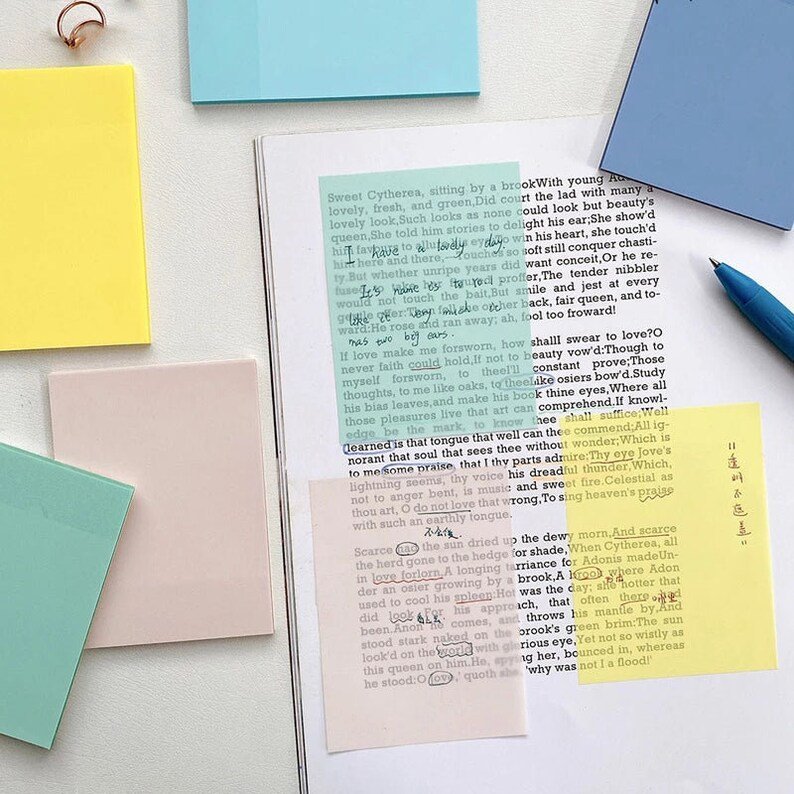 Sweet Cytherea, sitting by a brookWith young Ado
lovely, fresh, and green,Did court the lad with many a
lovely look,Such looks as none could look but beauty's
queen,She told him stories to delight his ear;She show'd
him favours to allure his eye;To win his heart, she touch'd
him here and there, Touches so soft still conquer chasti-
ty.But whether unripe years did want conceit,Or he re-
fused to take her figured proffer,The tender nibbler
would not touch the bait,But smile and jest at every
gentle offer:Then fell she on her back, fair queen, and to-
ward:He rose and ran away; ah, fool too froward!
I have a lovely day
It's name is
like it very much it
has two big ears.
If love make me forsworn, how shalll swear to love?O
never faith could hold,If not to beauty vow'd:Though to
myself forsworn, to thee'll constant prove;Those
thoughts, to me like oaks, to theelike osiers bow'd.Study
his bias leaves,and make his book thine eyes,Where all
those pleasures live that art can comprehend.If knowl-
edge be the mark, to know thee shall suffice;Well
learned is that tongue that well can thee commend;All ig-
norant that soul that sees thee without wonder;Which is
to me some praise, that I thy parts admire:Thy eye Jove's
lightning seems, thy voice his dreadful thunder,Which,
not to anger bent, is music and sweet fire.Celestial as
thou art, O do not love that wrong,To sing heaven's praise
with such an earthly tongue.
Scarce had the sun dried up the dewy morn,And scarce
the herd gone to the hedge for shade,When Cytherea, all
in love forlorn,A longing tarriance for Adonis madeUn-
der an osier growing by a brook,A brook where Adon
used to cool his spleen:Hot was the day; she hotter that
did look For his approach, that often there had
been.Anon he comes, and throws his mantle by,And
stood stark naked on the brook's green brim:The sun
look'd on the world with glorious eye,Yet not so wistly as
this queen on him.He, spying her, bounced in, whereas
he stood:O love,' quoth she, 'why was not I a flood!'